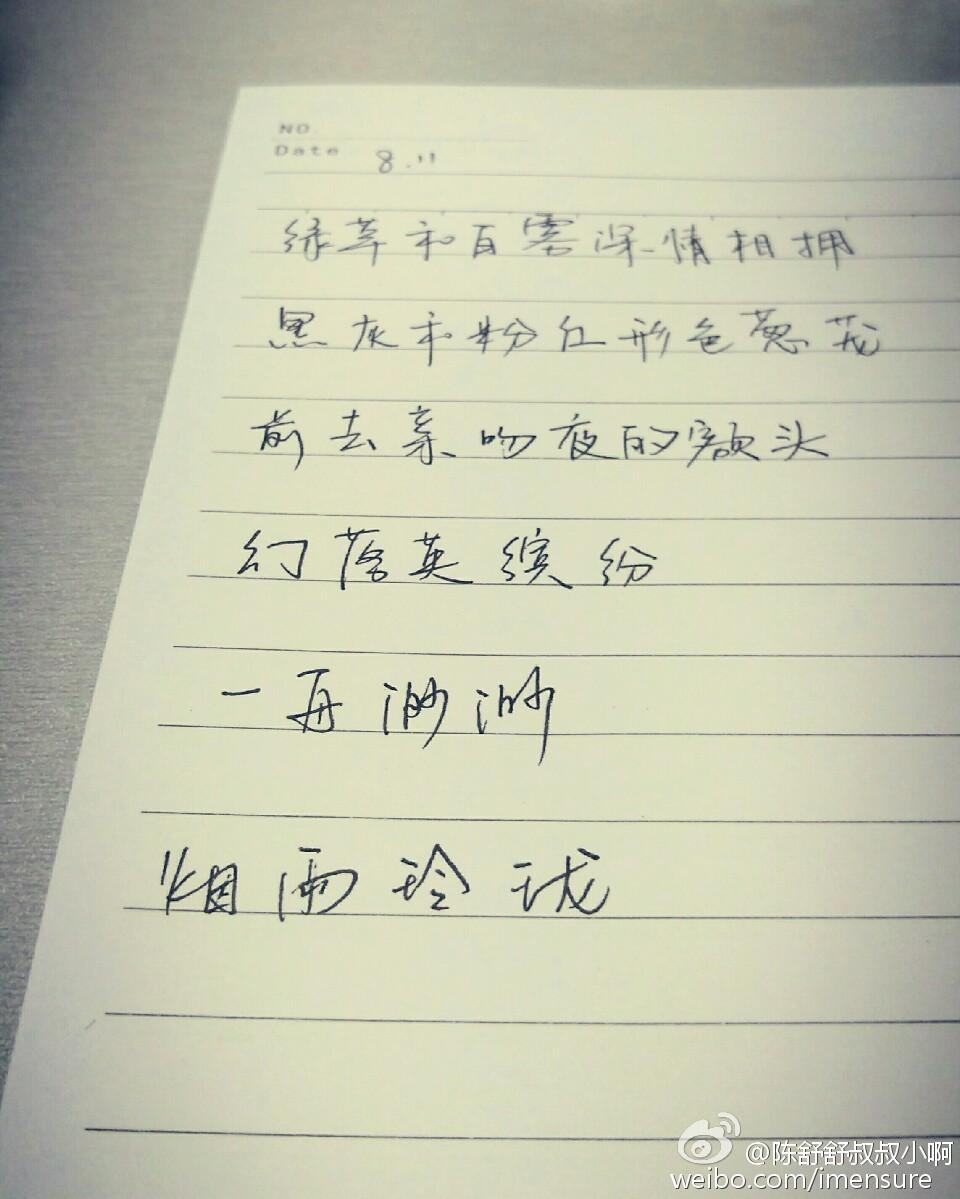 NO.
Date 8.11
绿草和白雾深情相拥
黑灰和粉红形色葱茏
前去亲吻夜的额头
幻落英缤纷
一再渺渺
烟雨玲珑
@陈舒舒叔叔小啊
weibo.com/imensure